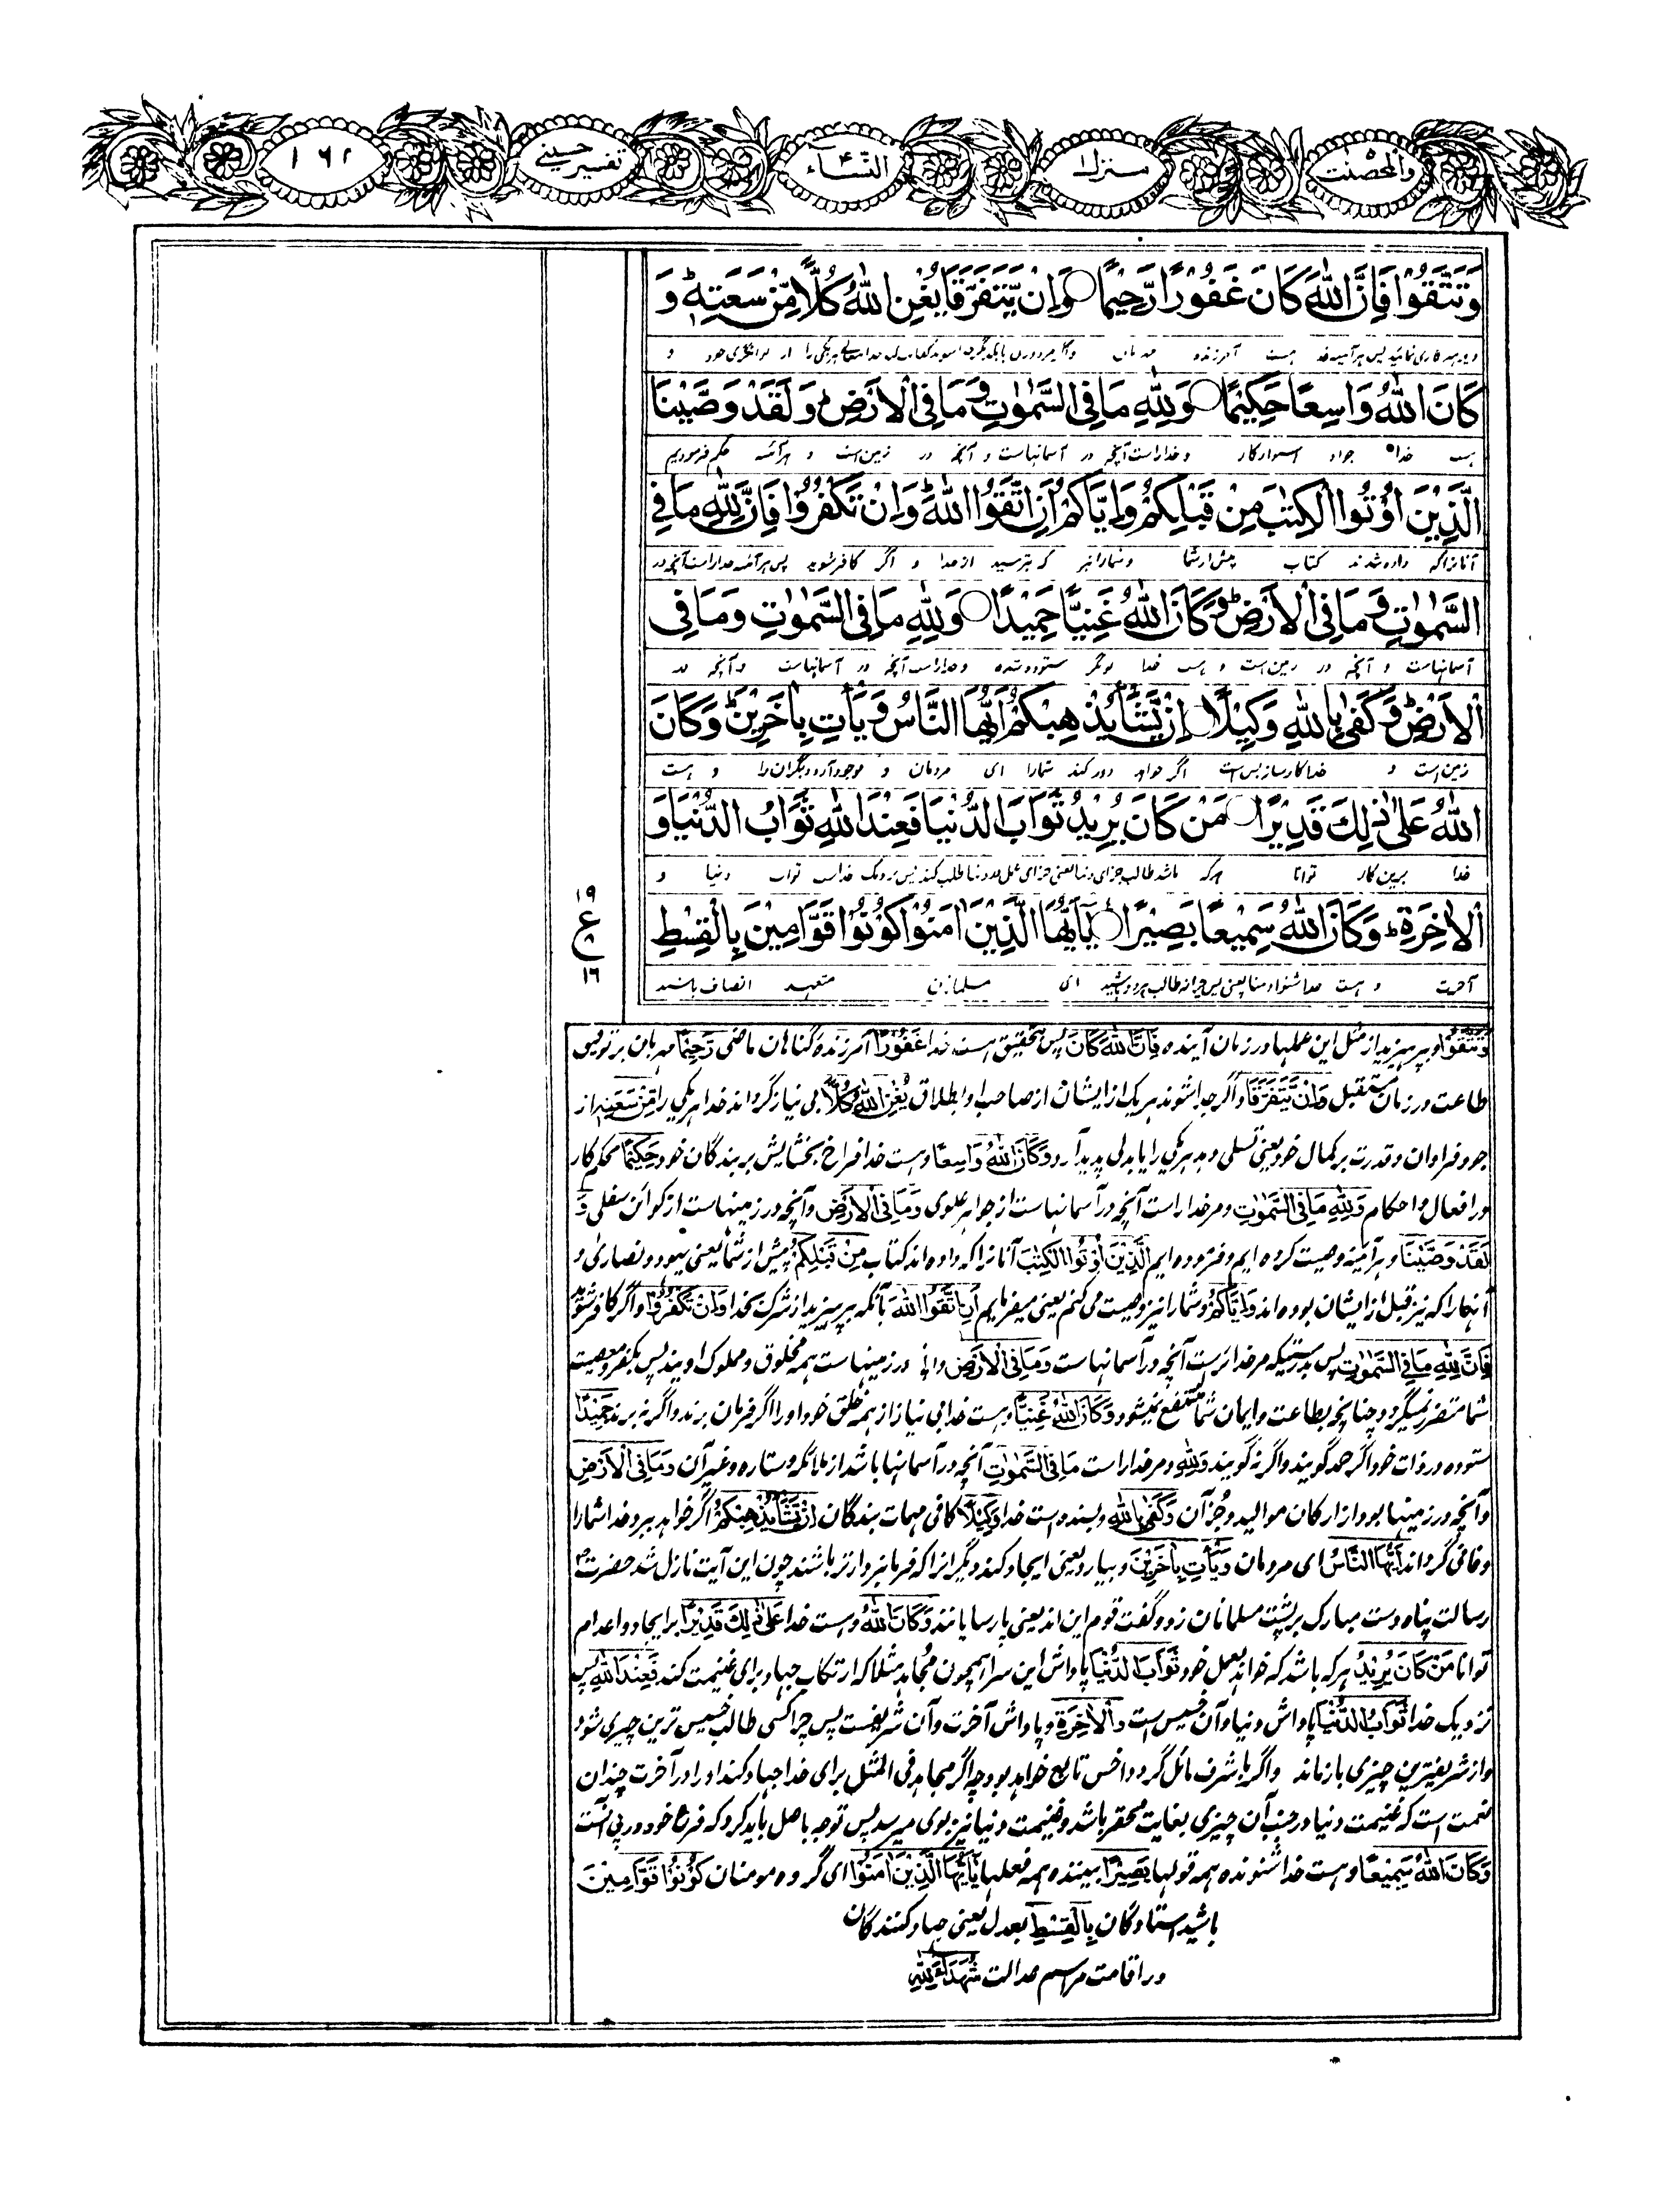 والمحصنت
منزل ١
النسآء ۴
تفسیر حسینی
۱۶۲
وَتَتَّقُوْا فَاِنَّ اللّٰهَ كَانَ غَفُوْرًا رَّحِيْمًا ○ وَاِنْ يَّتَفَرَّقَا يُغْنِ اللّٰهُ كُلًّا مِّنْ سَعَتِهٖ ؕ وَ
هست آمرزنده
كَانَ اللّٰهُ وَاسِعًا حَكِيْمًا ○ وَلِلّٰهِ مَا فِى السَّمٰوٰتِ وَمَا فِى الْاَرْضِ ؕ وَلَقَدْ وَصَّيْنَا
هست خدا جواد استوارکار و خداراست آنچه در آسمانهاست و آنچه در زمین است و هرآئنه حکم فرمودیم
الَّذِيْنَ اُوْتُوا الْكِتٰبَ مِنْ قَبْلِكُمْ وَاِيَّاكُمْ اَنِ اتَّقُوا اللّٰهَ ؕ وَاِنْ تَكْفُرُوْا فَاِنَّ لِلّٰهِ مَا فِى
آنانراکه داده شدند کتاب پیش از شما و شمارا نیز که بترسید از خدا و اگر کافر شوید پس هرآئنه خداراست آنچه در
السَّمٰوٰتِ وَمَا فِى الْاَرْضِ ؕ وَكَانَ اللّٰهُ غَنِيًّا حَمِيْدًا ○ وَلِلّٰهِ مَا فِى السَّمٰوٰتِ وَمَا فِى
آسمانهاست و آنچه در زمین است و هست خدا تونگر ستوده شده و خداراست آنچه در آسمانهاست و آنچه در
الْاَرْضِ ؕ وَكَفٰى بِاللّٰهِ وَكِيْلًا ○ اِنْ يَّشَاْ يُذْهِبْكُمْ اَيُّهَا النَّاسُ وَيَاْتِ بِاٰخَرِيْنَ ؕ وَكَانَ
زمین است و خدا کارساز بس است اگر خواهد دور کند شمارا ای مردمان و موجود آرد دیگران را و هست
اللّٰهُ عَلٰى ذٰلِكَ قَدِيْرًا ○ مَنْ كَانَ يُرِيْدُ ثَوَابَ الدُّنْيَا فَعِنْدَ اللّٰهِ ثَوَابُ الدُّنْيَا وَ
خدا برین کار توانا هرکه باشد طالب جزای دنیا یعنی جزای عمل خود در دنیا طلب کند پس نزدیک خداست ثواب دنیا و
الْاٰخِرَةِ ؕ وَكَانَ اللّٰهُ سَمِيْعًا بَصِيْرًا ○ يٰٓاَيُّهَا الَّذِيْنَ اٰمَنُوْا كُوْنُوْا قَوّٰمِيْنَ بِالْقِسْطِ
آخرت و هست خدا شنوا و بینا یعنی پس چرا نه طالب هردو باشید ای مسلمانان متعهد انصاف باشید
۱۹
ع
۱۶
وَتَتَّقُوْا و بپرهیزید از مثل این عملها در زمان آینده فَاِنَّ اللّٰهَ كَانَ پس بتحقیق هست خدا غَفُوْرًا آمرزنده گناهان ماضی رَّحِيْمًا مهربان بر توفیق
طاعت در زمان مستقبل وَاِنْ يَّتَفَرَّقَا و اگر جدا شوند هریک از ایشان از صاحب او بطلاق يُغْنِ اللّٰهُ كُلًّا بی نیاز گرداند خدا هریکی را مِّنْ سَعَتِهٖ از
جود فراوان و قدرت بر کمال خود یعنی تسلی دهد هریکی را یا بدلی پدید آرد وَكَانَ اللّٰهُ وَاسِعًا و هست خدا فراخ بخشایش بر بندگان خود حَكِيْمًا محکم کار
در افعال و احکام وَلِلّٰهِ مَا فِى السَّمٰوٰتِ و مر خدا راست آنچه در آسمانهاست از جواهر علوی وَمَا فِى الْاَرْضِ و آنچه در زمینهاست از کوائن سفلی وَ
لَقَدْ وَصَّيْنَا و هرآئینه وصیت کرده ایم و فرموده ایم الَّذِيْنَ اُوْتُوا الْكِتٰبَ آنانراکه داده اند کتاب مِنْ قَبْلِكُمْ پیش از شما یعنی یهود و نصاری و
آنهارا که نیز قبل از ایشان بوده اند وَاِيَّاكُمْ و شمارا نیز وصیت می کنم یعنی میفرمایم اَنِ اتَّقُوا اللّٰهَ بآنکه بپرهیزید از شرک بخدا وَاِنْ تَكْفُرُوْا و اگر کافر شوید
فَاِنَّ لِلّٰهِ مَا فِى السَّمٰوٰتِ پس بدرستیکه مر خدایراست آنچه در آسمانهاست وَمَا فِى الْاَرْضِ در زمینهاست همه مخلوق و مملوک اویند پس بکفر و معصیت
شما متضرر نمیگردد چنانچه بطاعت و ایمان شما منتفع نمیشود وَكَانَ اللّٰهُ غَنِيًّا و هست خدا بی نیاز از همه خلق خود او را اگر فرمان برند و اگر نه برند حَمِيْدًا
ستوده در ذات خود اگر حمد گویند و اگر نه گویند وَلِلّٰهِ و مر خدا راست مَا فِى السَّمٰوٰتِ آنچه در آسمانها باشد از ملائکه و ستاره و غیر آن وَمَا فِى الْاَرْضِ
و آنچه در زمینها بود از ارکان موالید و جز آن وَكَفٰى بِاللّٰهِ و بسنده است خدا وَكِيْلًا کافی مهمات بندگان اِنْ يَّشَاْ يُذْهِبْكُمْ اگر خواهد ببرد خدا شمارا
و فانی گرداند اَيُّهَا النَّاسُ ای مردمان وَيَاْتِ بِاٰخَرِيْنَ و بیارد یعنی ایجاد کند دیگرانرا که فرمانبردارتر باشند چون این آیت نازل شد حضرت
رسالت پناه دست مبارک بر پشت سلمان زد و گفت قوم این اند یعنی پارسایانند وَكَانَ اللّٰهُ و هست خدا عَلٰى ذٰلِكَ قَدِيْرًا بر ایجاد و اعدام
توانا مَنْ كَانَ يُرِيْدُ هرکه باشد که خواهد بعمل خود ثَوَابَ الدُّنْيَا پاداش این سرا همچون مجاهد مثلا که ارتکاب جهاد برای غنیمت کند فَعِنْدَ اللّٰهِ پس
نزدیک خدا ثَوَابُ الدُّنْيَا پاداش دنیا و آن خسیس است وَالْاٰخِرَةِ و پاداش آخرت و آن شریفست پس چرا کسی طالب خسیس ترین چیزی شود
و از شریفترین چیزی بازماند و اگر باشرف مائل گردد اخس تابع خواهد بود چه اگر مجاهد فی المثل برای خدا جهاد کند او را در آخرت چندان
نعمت است که غنیمت دنیا در جنب آن چیزی بغایت محقر باشد و غنیمت دنیا نیز بوی میرسد پس توجه باصل باید کرد که فرع خود در پی آنست
وَكَانَ اللّٰهُ سَمِيْعًا و هست خدا شنونده همه قولها بَصِيْرًا بیننده همه فعلها يٰٓاَيُّهَا الَّذِيْنَ اٰمَنُوْا ای گروه مومنان كُوْنُوْا قَوّٰمِيْنَ
باشید استادگان بِالْقِسْطِ بعدل یعنی جهاد کنندگان
در اقامت مراسم عدالت شُهَدَآءَ لِلّٰهِ